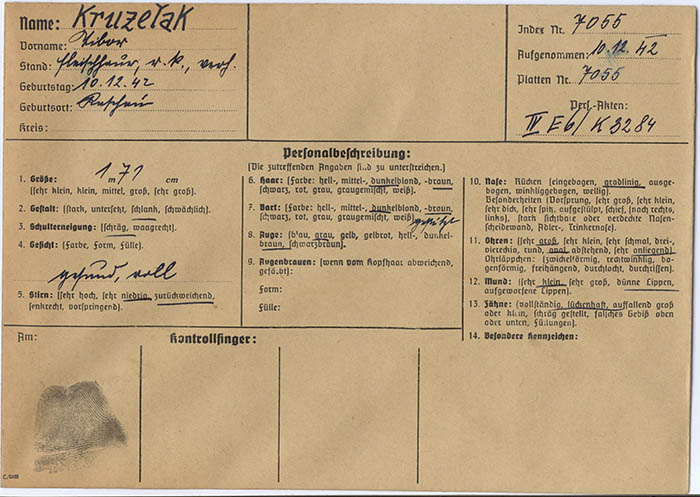 Name: Kruzelak
Vorname: Tibor
Stand: Fleischhauer, r. k., verh.
Geburtstag: 10.12.42
Geburtsort: Kaschau
Kreis:
Index Nr. 7055
Aufgenommen: 10.12.42
Platten Nr. 7055
Pers.-Akten:
IV E 6/ K 3284
Personalbeschreibung:
(Die zutreffenden Angaben sind zu unterstreichen.)
1. Größe: 1 m 71 cm
(sehr klein, klein, mittel, groß, sehr groß).
2. Gestalt: (stark, untersetzt, schlank, schwächlich).
3. Schulterneigung: (schräg, waagrecht).
4. Gesicht: (Farbe, Form, Fülle).
gesund, voll
5. Stirn: (sehr hoch, sehr niedrig, zurückweichend,
senkrecht, vorspringend).
6. Haar: (Farbe: hell-, mittel-, dunkelblond, -braun,
schwarz, rot, grau, graugemischt, weiß).
7. Bart: (Farbe: hell-, mittel-, dunkelblond, -braun,
schwarz, rot, grau, graugemischt, weiß) gestutzt
8. Auge: (blau, grau, gelb, gelbrot, hell-, dunkel-
braun, schwarzbraun).
9. Augenbrauen: (wenn vom Kopfhaar abweichend,
gefärbt):
Form:
Fülle:
10. Nase: Rücken (eingebogen, gradlinig, ausge-
bogen, winkliggebogen, wellig).
Besonderheiten (Vorsprung, sehr groß, sehr klein,
sehr dick, sehr spitz, aufgestülpt, schief, [nach rechts,
links), stark sichtbare oder verdeckte Nasen-
scheidewand, Adler-, Trinkernase).
11. Ohren: (sehr groß, sehr klein, sehr schmal, drei-,
viereckig, rund, oval, abstehend, sehr anliegend)
Ohrläppchen: (zwickelförmig, rechtwinklig, bo-
genförmig, freihängend, durchlocht, durchrissen).
12. Mund: (sehr klein, sehr groß, dünne Lippen,
aufgeworfene Lippen).
13. Zähne: (vollständig, lückenhaft, auffallend groß
oder klein, schräg gestellt, falsches Gebiß oben
oder unten, Füllungen).
14. Besondere Kennzeichen:
Am:
Kontrollfinger: